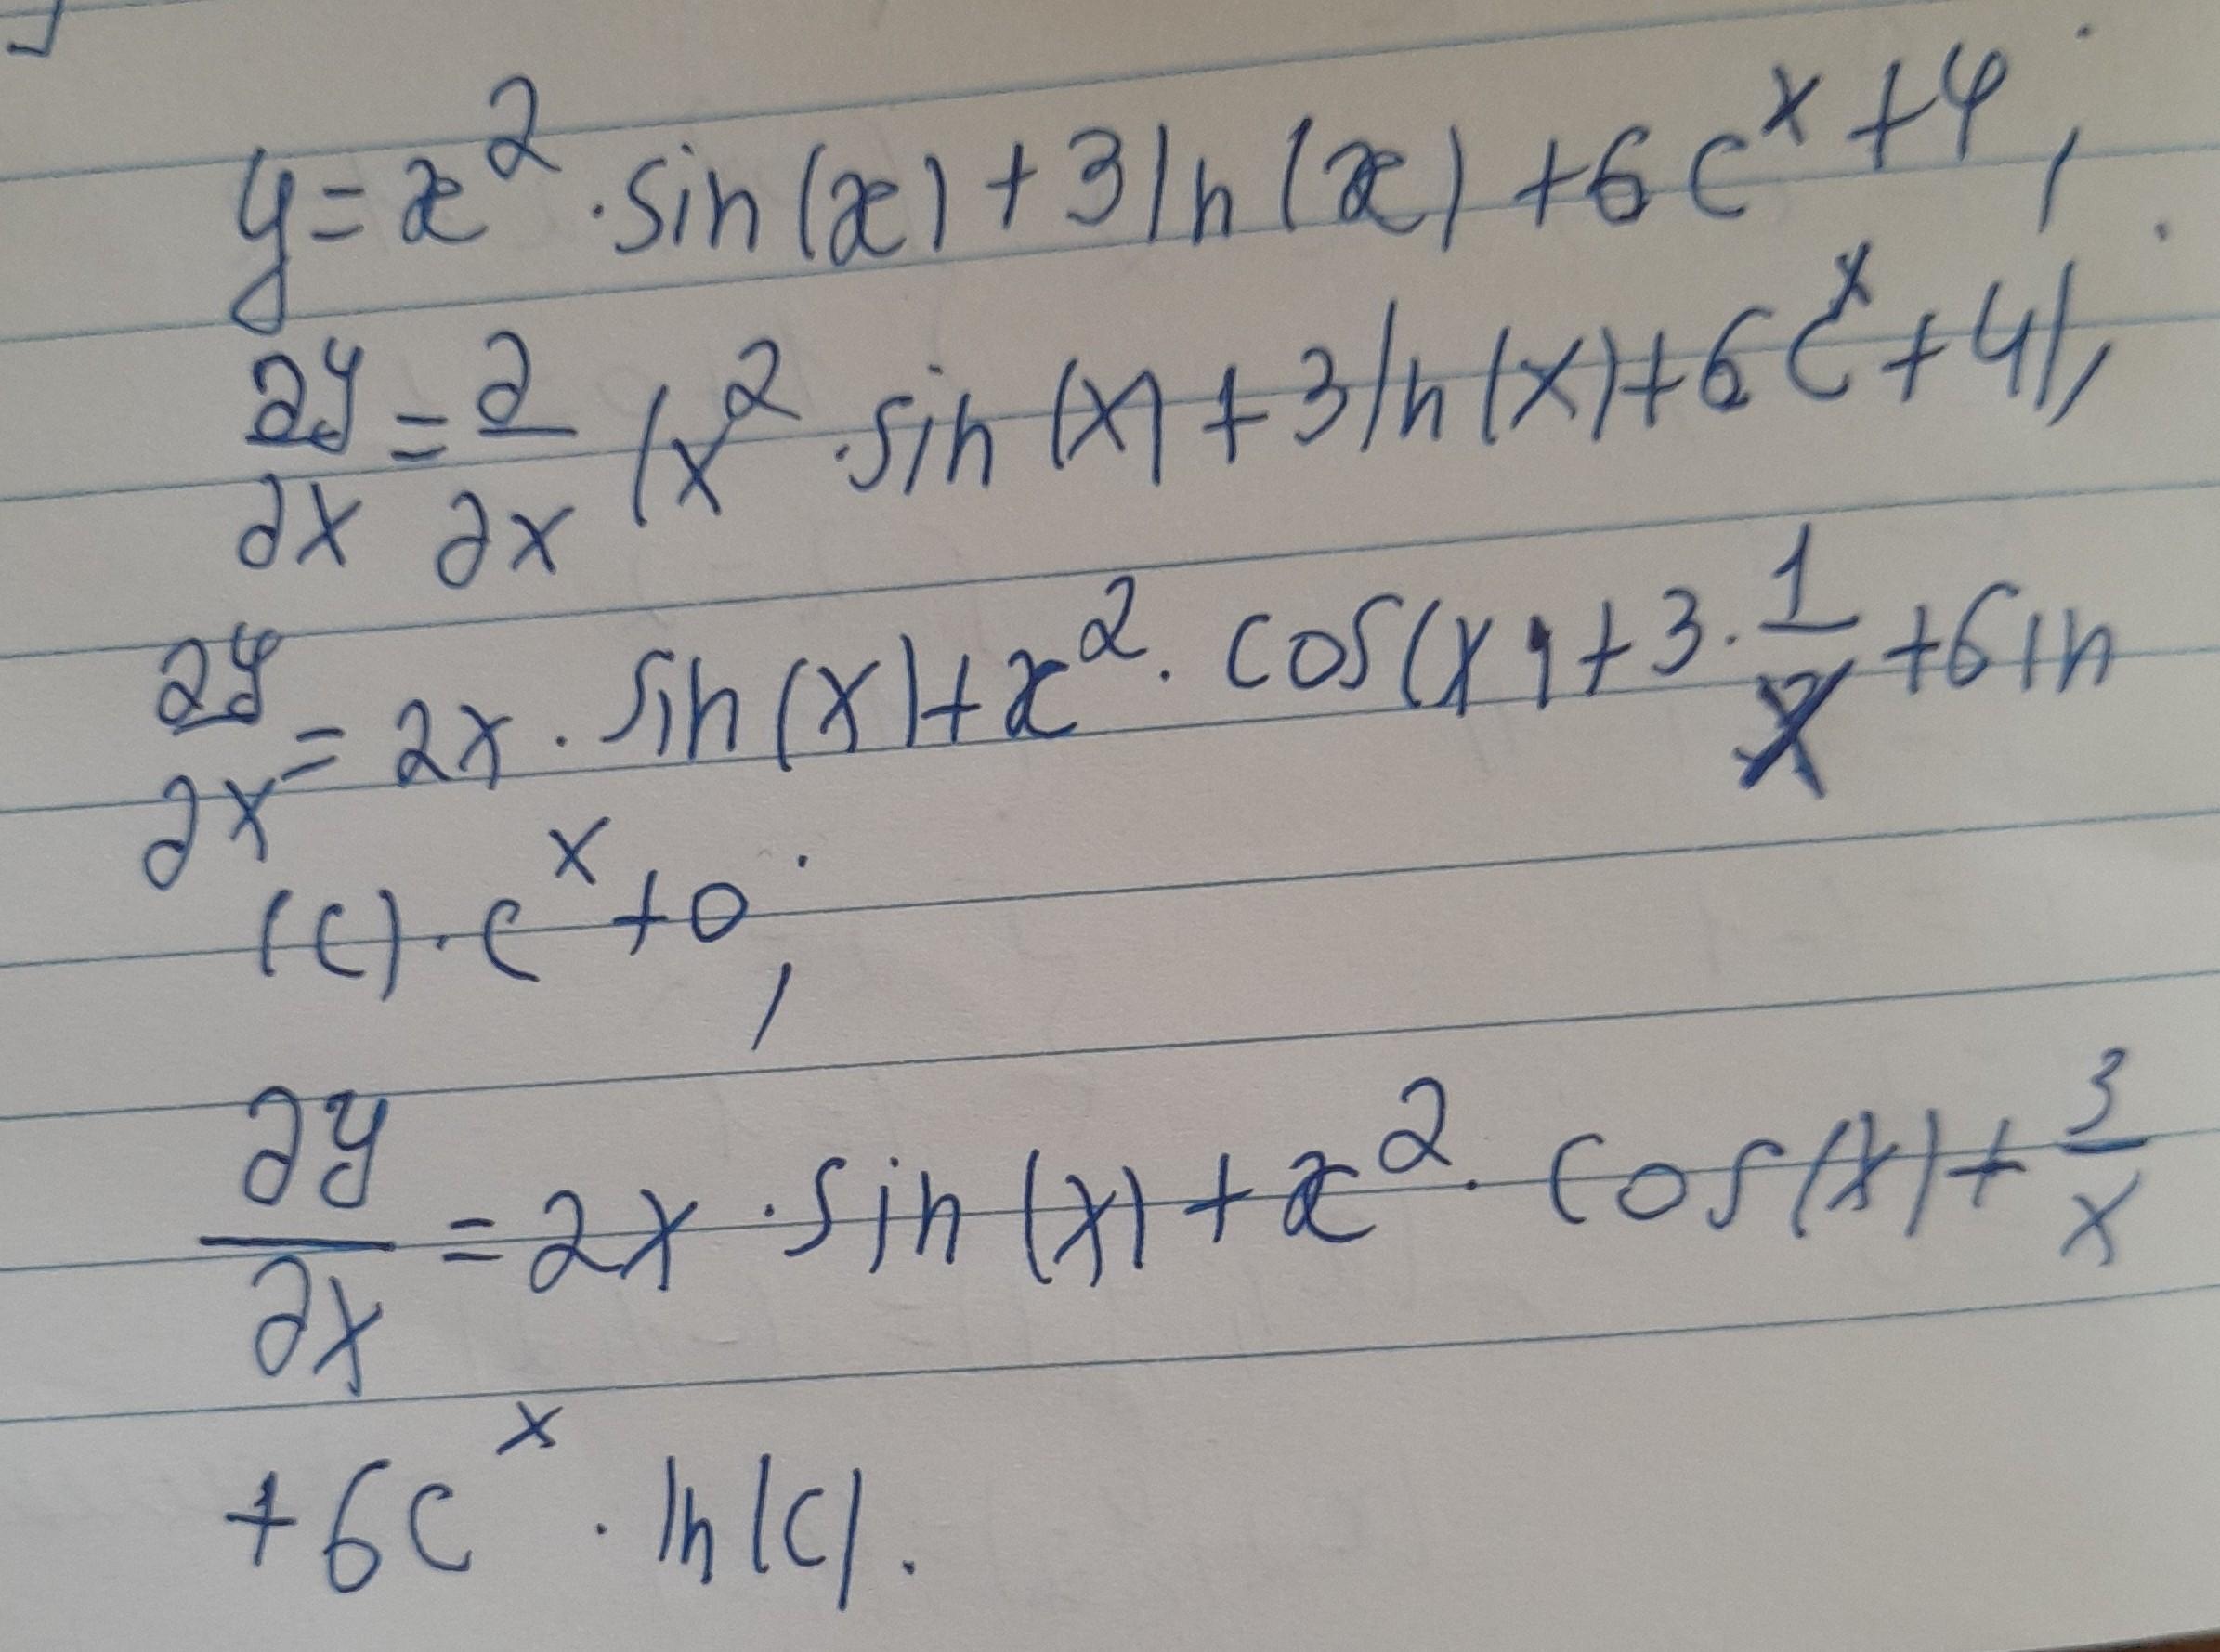 y = x² · sin(x) + 3 ln(x) + 6c^x + 4;
∂y/∂x = ∂/∂x (x² · sin(x) + 3 ln(x) + 6c^x + 4),
∂y/∂x = 2x · sin(x) + x² · cos(x) + 3 · 1/x + 6 ln
(c) · c^x + 0;
∂y/∂x = 2x · sin(x) + x² · cos(x) + 3/x
+ 6c^x · ln(c).